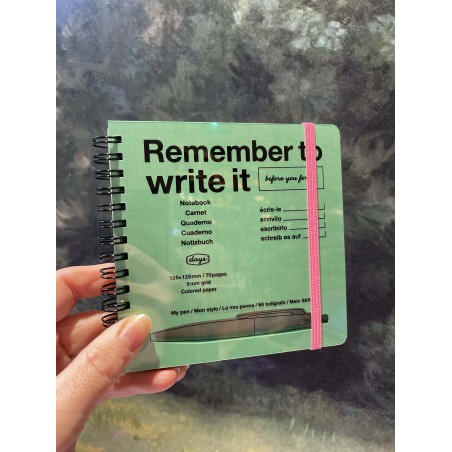 Remember to
write it
before you for
Notebook
Carnet
Quaderno
Cuaderno
Notizbuch
écris-le
scrivilo
escribirlo
schreib es auf
days
128×128mm / 70pages
5mm grid
Colored paper
My pen / Mon stylo / La mia penna / Mi bolígrafo / Mein